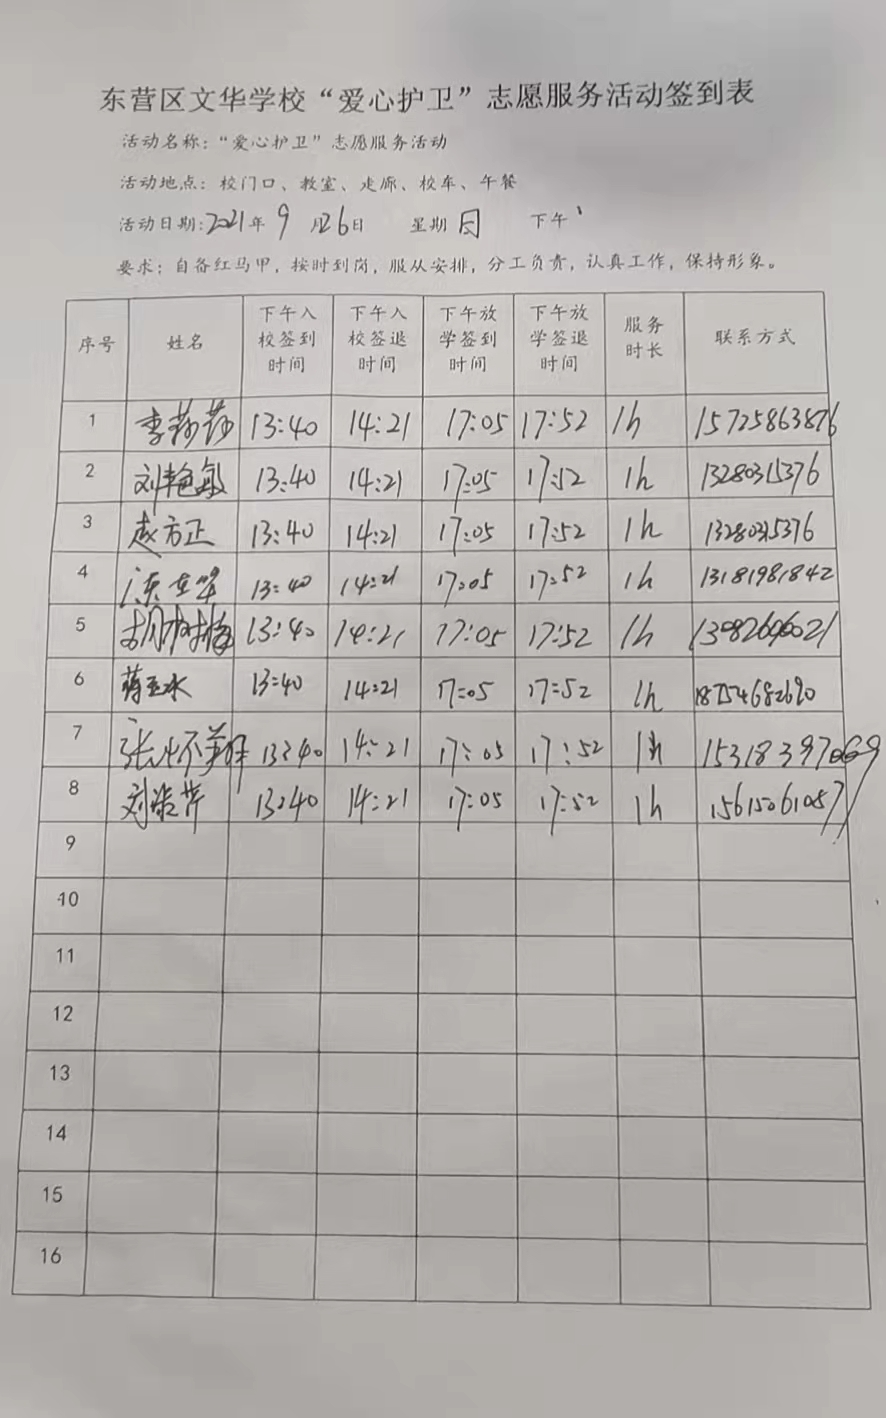 东营区文华学校“爱心护卫”志愿服务活动签到表
活动名称：“爱心护卫”志愿服务活动
活动地点：校门口、教室、走廊、校车、午餐
活动日期：2021年 9 月26日 星期 日 下午
要求：自备红马甲，按时到岗，服从安排，分工负责，认真工作，保持形象。
序号 姓名 下午入校签到时间 下午入校签退时间 下午放学签到时间 下午放学签退时间 服务时长 联系方式
1 李莎莎 13:40 14:21 17:05 17:52 1h 15725863876
2 刘艳敏 13:40 14:21 17:05 17:52 1h 13280315376
3 赵方正 13:40 14:21 17:05 17:52 1h 13280315376
4 13:40 14:21 17:05 17:52 1h 13181981842
5 胡树梅 13:40 14:21 17:05 17:52 1h
6 蒋玉水 13:40 14:21 17:05 17:52 1h 18754682690
7 张怀翔 13:40 14:21 17:05 17:52 1h 15318397069
8 13:40 14:21 17:05 17:52 1h 15615061057
9
10
11
12
13
14
15
16